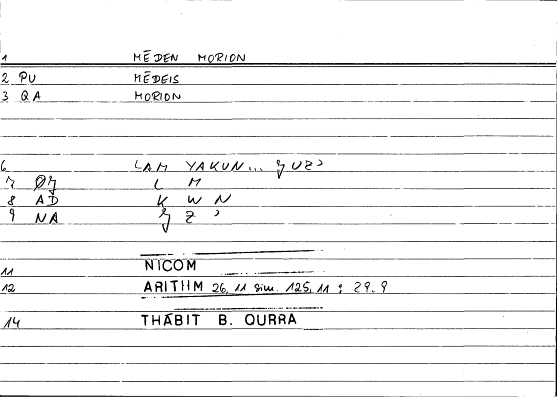 1 MĒDEN MORION
2 PU MĒDEIS
3 QA MORION
6 LAM YAKUN... ǦUZʾ
7 ØǦ L M
8 AD K W N
9 NA Ǧ Z ʾ
11 NICOM
12 ARITHM 26, 11 sim. 125, 11 : 29. 9
14 THĀBIT B. QURRA